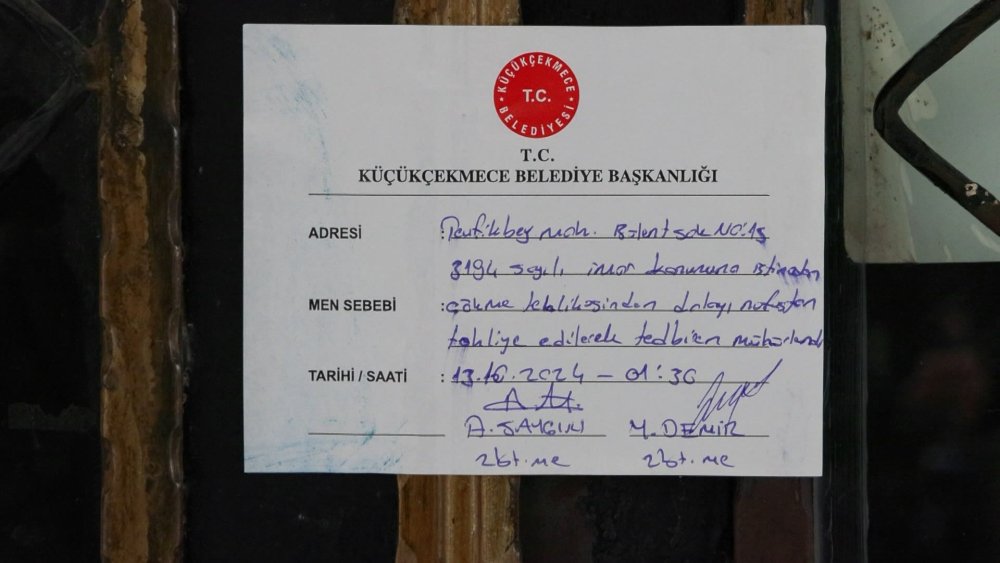 KÜÇÜKÇEKMECE
T.C.
BELEDİYESİ
T.C.
KÜÇÜKÇEKMECE BELEDİYE BAŞKANLIĞI
ADRESİ : Tevfikbey mah. Bülent sok NO:15
3194 sayılı imar kanununa istinaden
MEN SEBEBİ : çökme tehlikesinden dolayı nüfustan
tahliye edilerek tedbiren mühürlendi
TARİHİ / SAATİ : 13.10.2024 - 01:30
A. SAYGIN M. DEMİR
zbt. me zbt. me